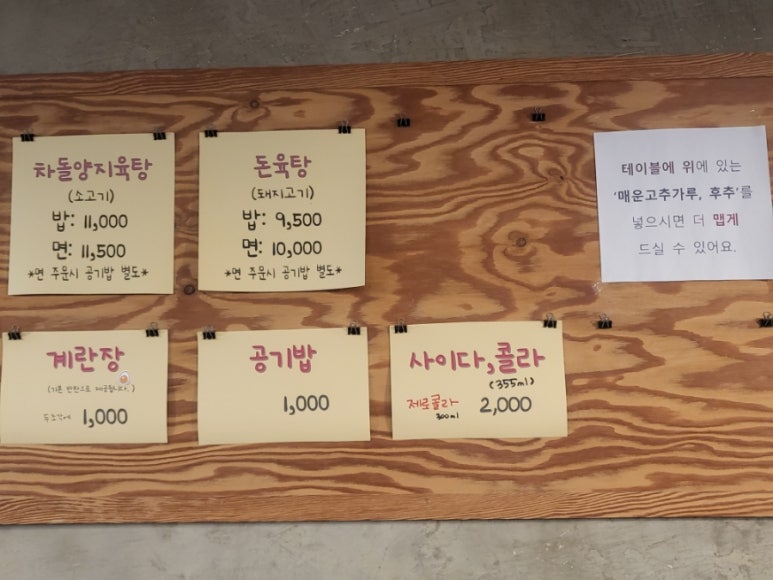 차돌양지육탕
(소고기)
밥: 11,000
면: 11,500
*면 주문시 공기밥 별도*
돈육탕
(돼지고기)
밥: 9,500
면: 10,000
*면 주문시 공기밥 별도*
테이블에 위에 있는
'매운고추가루, 후추'를
넣으시면 더 맵게
드실 수 있어요.
계란장
(기본 반찬으로 제공됩니다.)
두조각에 1,000
공기밥
1,000
사이다,콜라
(355ml)
제로콜라 2,000
300ml